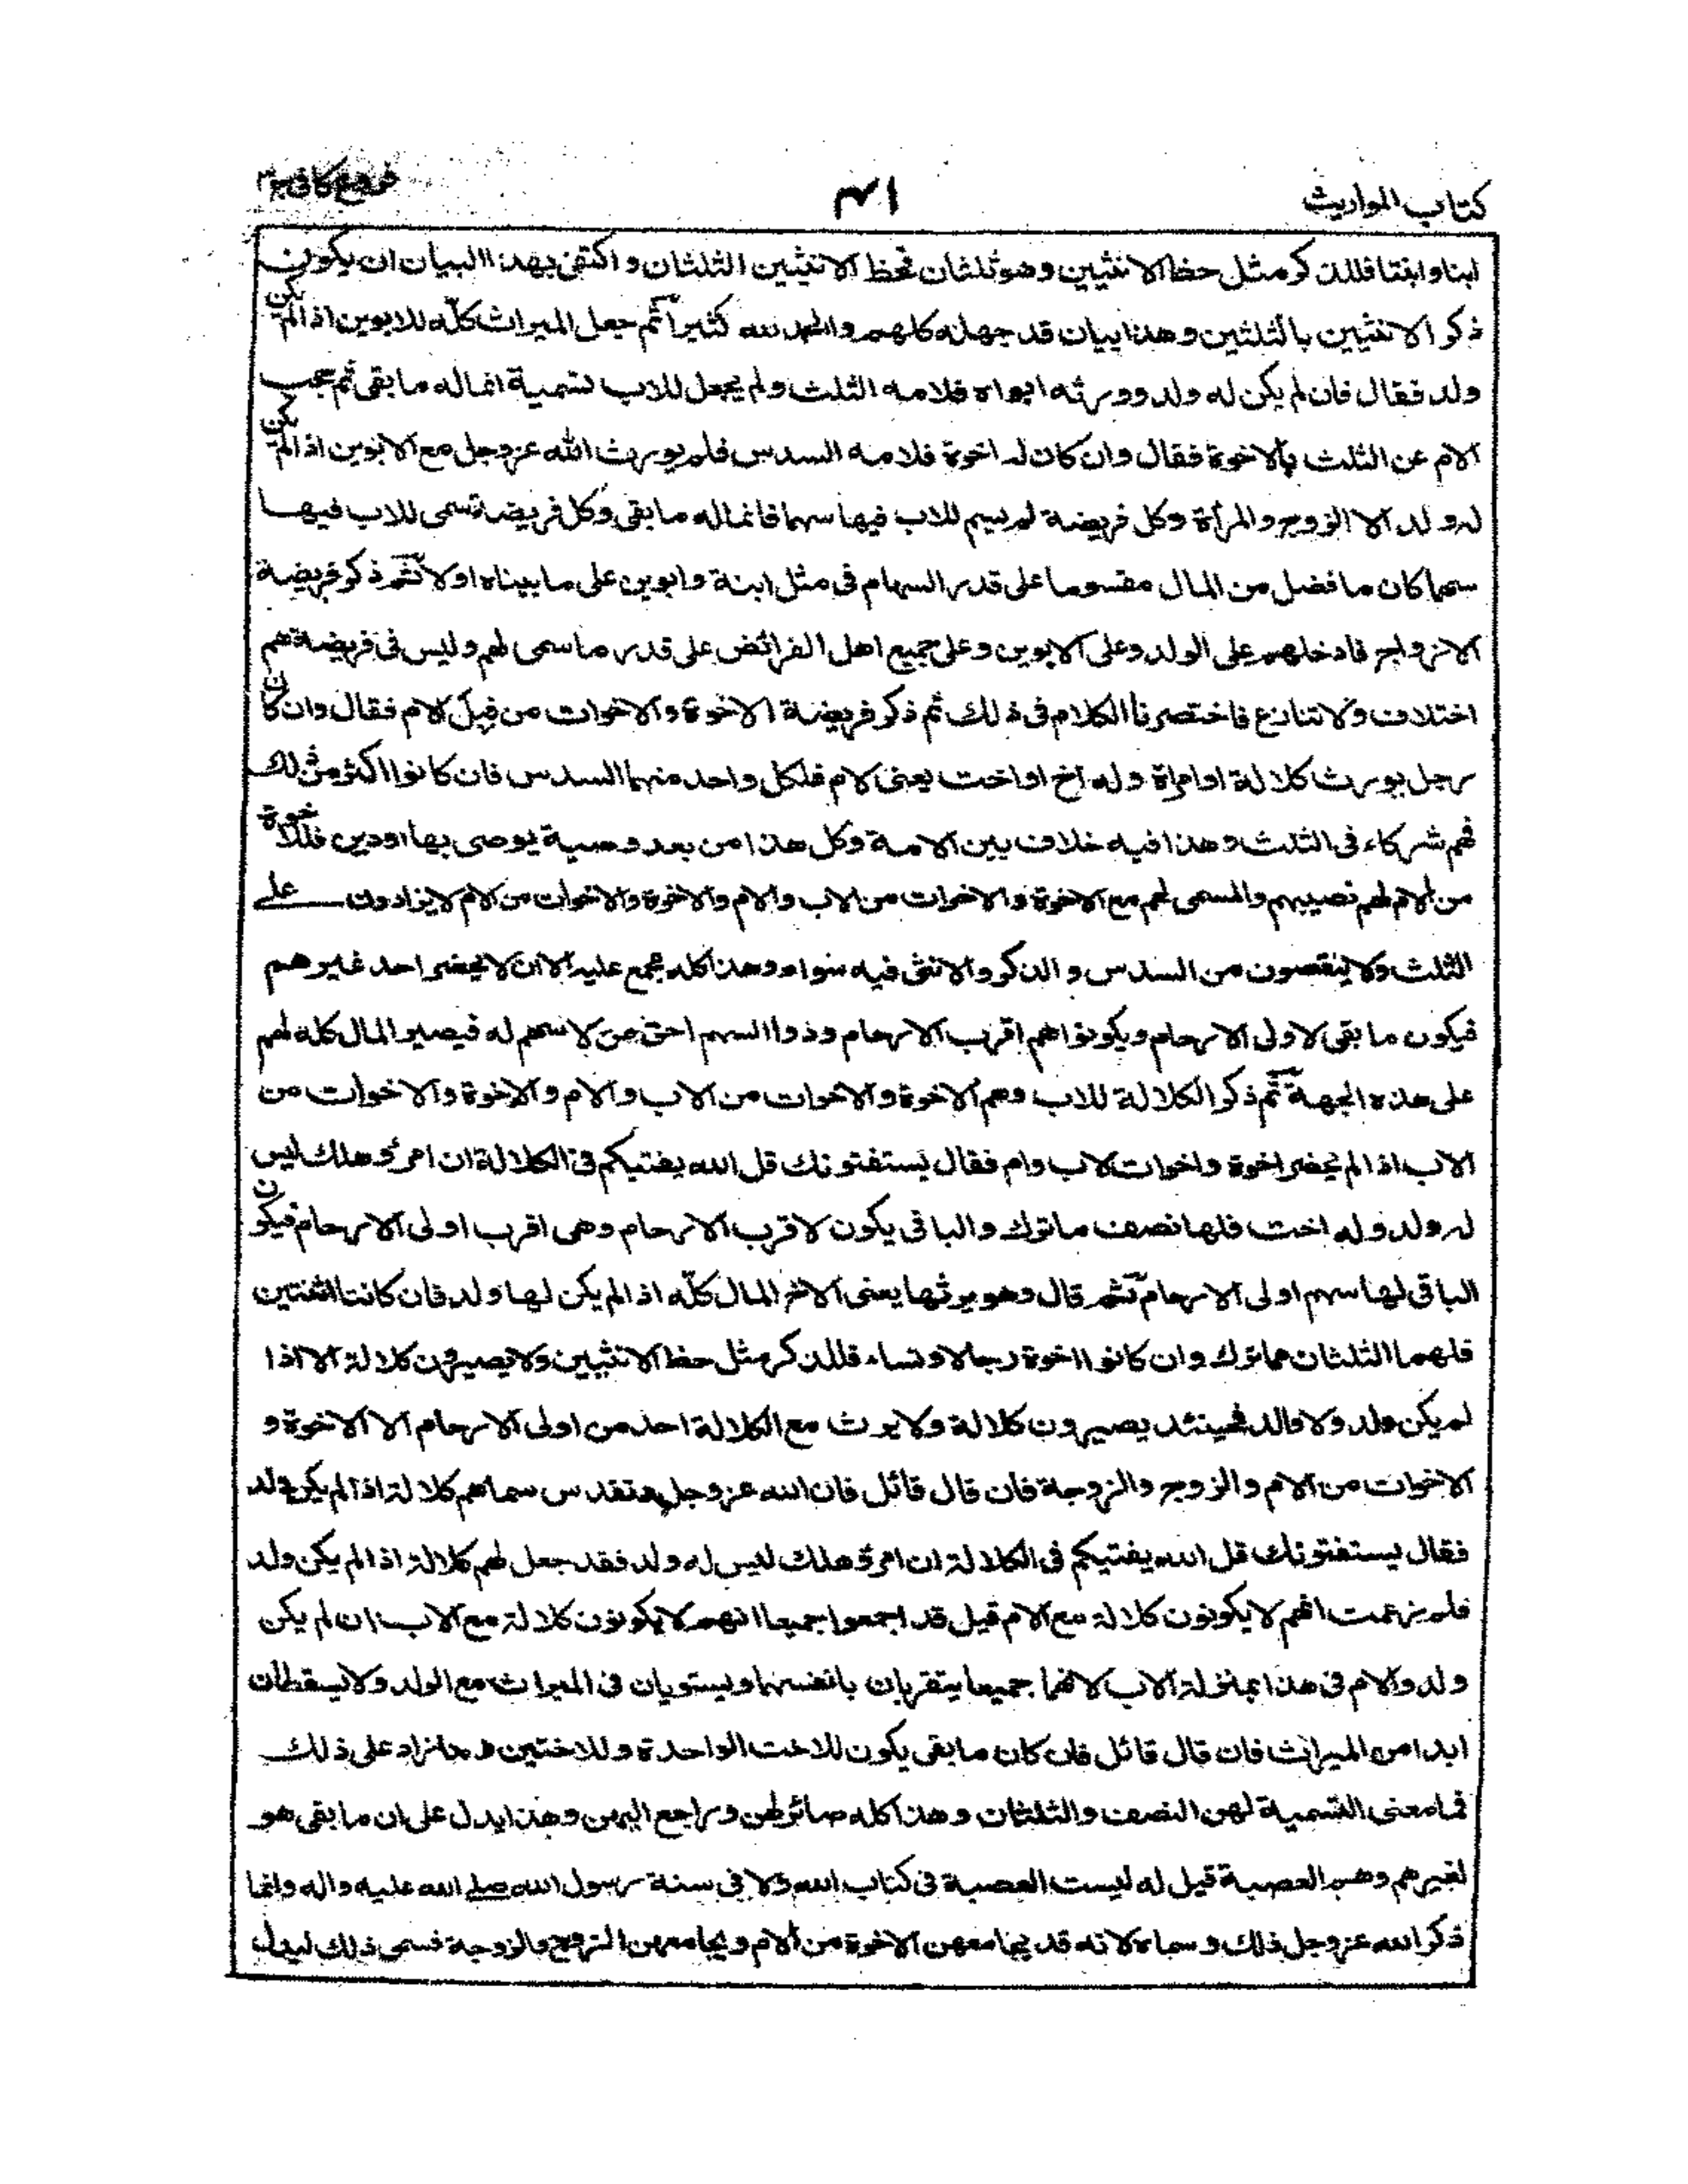 كتاب المواريث
٤١
فروع كافى ج٣
ابنا وابنتا فللذكر مثل حظ الانثيين وهو ثلثان فحظ الانثيين الثلثان واكتفى بهذا البيان ان يكون
ذكر الانثيين بالثلثين وهذا بيان قد جهله كلهم والحمد لله كثيرا ثم جعل الميراث كلّه للابوين اذا لم يكن
ولد فقال فان لم يكن له ولد وورثه ابواه فلامه الثلث ولم يجعل للاب تسمية انما له ما بقى ثم حجب
الام عن الثلث بالاخوة فقال وان كان له اخوة فلامه السدس فلم يورث الله عزوجل مع الابوين اذا لم يكن
له ولد الا الزوج والمرأة وكل فريضة لم يسم للاب فيها سهما فانما له ما بقى وكل فريضة سمى للاب فيها
سهما كان ما فضل من المال مقسوما على قدر السهام فى مثل ابنة وابوين على ما بيناه اولا ثم ذكر فريضة
الازواج فادخلهم على الولد وعلى الابوين وعلى جميع اهل الفرائض على قدر ما سمى لهم وليس فى فريضتهم
اختلاف ولا تنازع فاختصرنا الكلام فى ذلك ثم ذكر فريضة الاخوة والاخوات من قبل الام فقال وان كان
رجل يورث كلالة او امرأة وله اخ او اخت يعنى لام فلكل واحد منهما السدس فان كانوا اكثر من ذلك
فهم شركاء فى الثلث وهذا فيه خلاف بين الامة وكل هذا من بعد وصية يوصى بها اودين فللاخوة
من الام لهم نصيبهم والمسمى لهم مع الاخوة والاخوات من الاب والام والاخوة والاخوات من الام لا يزادون على
الثلث ولا ينقصون من السدس والذكر والانثى فيه سواء وهذا كله مجمع عليه الا ان لا يحضر احد غيرهم
فيكون ما بقى لاولى الارحام ويكونوا هم اقرب الارحام وذوا السهم احق ممن لا سهم له فيصير المال كله لهم
على هذه الجهة ثم ذكر الكلالة للاب وهم الاخوة والاخوات من الاب والام والاخوة والاخوات من
الاب اذا لم يحضر اخوة واخوات لاب وام فقال يستفتونك قل الله يفتيكم فى الكلالة ان امرؤ هلك ليس
له ولد وله اخت فلها نصف ما ترك والباقى يكون لاقرب الارحام وهى اقرب اولى الارحام فيكون
الباقى لها سهم اولى الارحام ثم قال وهو يرثها يعنى الاخ المال كلّه اذا لم يكن لها ولد فان كانتا اثنتين
فلهما الثلثان مما ترك وان كانوا اخوة رجالا ونساء فللذكر مثل حظ الانثيين ولا يصيرون كلالة الا اذا
لم يكن ولد ولا والد فحينئذ يصيرون كلالة ولا يرث مع الكلالة احد من اولى الارحام الا الاخوة و
الاخوات من الام والزوج والزوجة فان قال قائل فان الله عزوجل وتقدس سماهم كلالة اذا لم يكن ولد
فقال يستفتونك قل الله يفتيكم فى الكلالة ان امرؤ هلك ليس له ولد فقد جعل لهم كلالة اذا لم يكن ولد
فلم زعمت انهم لا يكونون كلالة مع الام قيل قد اجمعوا جميعا انهم لا يكونون كلالة مع الاب ان لم يكن
ولد والام فى هذا بمنزلة الاب لانهما جميعا يتقربان بانفسهما ويستويان فى الميراث مع الولد ولا يسقطان
ابدا من الميراث فان قال قائل فان كان ما بقى يكون للاخت الواحدة وللاختين وما زاد على ذلك
فما معنى التسمية لهن النصف والثلثان وهذا كله صائر لهن وراجع اليهن وهذا يدل على ان ما بقى هو
لغيرهم وهم العصبة قيل له ليست العصبة فى كتاب الله ولا فى سنة رسول الله صلى الله عليه واله وانما
ذكر الله عزوجل ذلك وسماه لانه قد يجامعهن الاخوة من الام ويجامعهن الزوج والزوجة فسمى ذلك ليدل